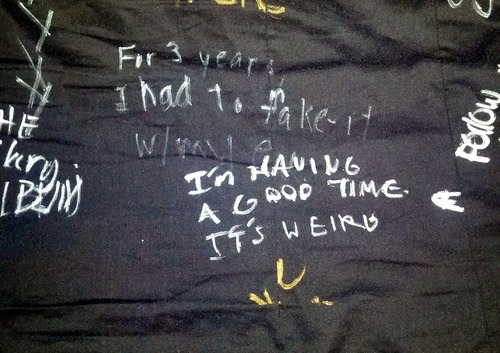 For 3 years
I had to fake it
w/my
I'm HAVING
A GOOD TIME.
IT'S WEIRD
HE
FOLLOW